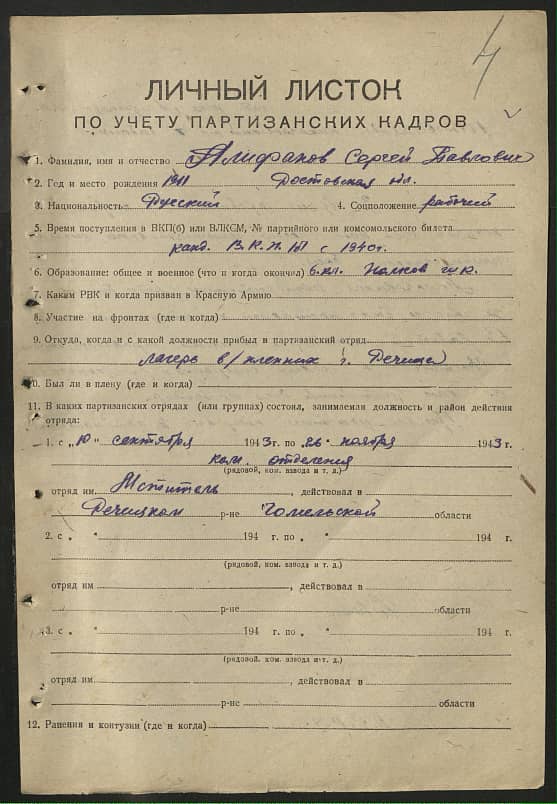 4
ЛИЧНЫЙ ЛИСТОК
ПО УЧЕТУ ПАРТИЗАНСКИХ КАДРОВ
1. Фамилия, имя и отчество Алифанов Сергей Павлович
2. Год и место рождения 1911 Ростовская обл.
3. Национальность Русский 4. Соцположение рабочий
5. Время поступления в ВКП(б) или ВЛКСМ, № партийного или комсомольского билета
канд. В.К.П.(б) с 1940г.
6. Образование: общее и военное (что и когда окончил) 6 кл. Полков шк.
7. Каким РВК и когда призван в Красную Армию
8. Участие на фронтах (где и когда)
9. Откуда, когда и с какой должности прибыл в партизанский отряд
лагерь в/пленных г. Речица
10. Был ли в плену (где и когда)
11. В каких партизанских отрядах (или группах) состоял, занимаемая должность и район действия
отряда:
1. с „10" сентября 1943г. по „26" ноября 1943г.
ком. отделения
(рядовой, ком. взвода и т. д.)
отряд им. Мститель, действовал в
Речицком р-не Гомельской области
2. с „ " 194 г. по „ " 194 г.
(рядовой, ком. взвода и т. д.)
отряд им , действовал в
р-не области
3. с „ " 194 г. по „ " 194 г.
(рядовой, ком. взвода и т. д.)
отряд им. , действовал в
р-не области
12. Ранения и контузии (где и когда)